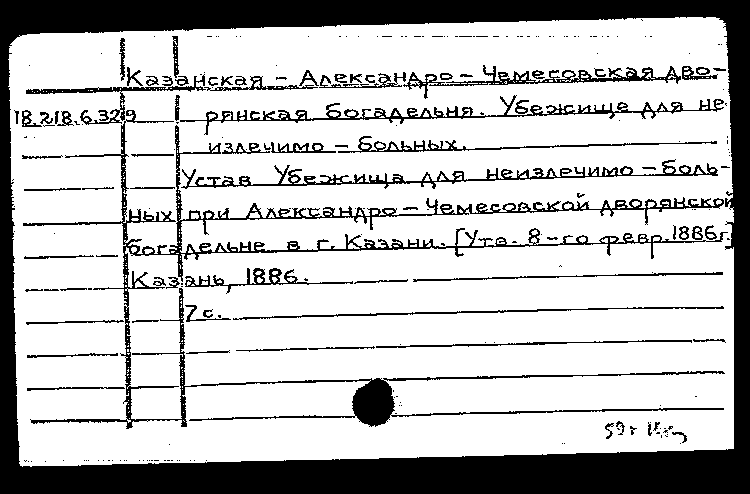 Казанская – Александро – Чемесовская дво-
18.218.6.329 рянская богадельня. Убежище для не
излечимо – больных.
Устав Убежища для неизлечимо – боль-
ных при Александро – Чемесовской дворянской
богадельне в г. Казани. [Утв. 8-го февр. 1886г.]
Казань, 1886.
7 с.